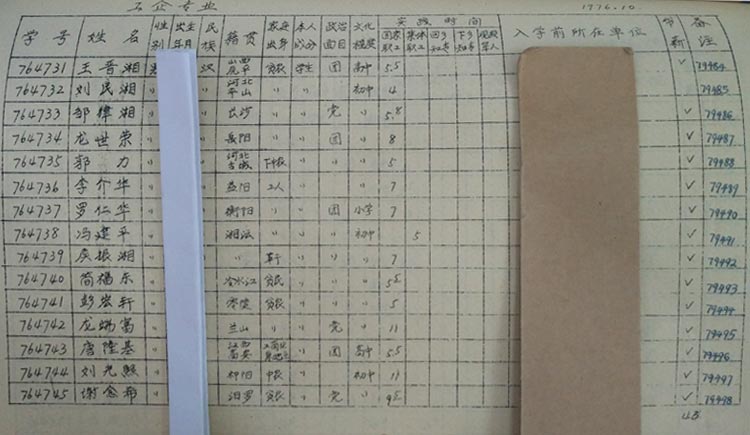 工企专业 1976.10.
学号 姓名 性别 出生年月 民族 籍贯 家庭出身 本人成分 政治面目 文化程度 实践时间 国家职工 集体职工 回乡知青 下乡知青 现役军人 入学前所在单位 带薪 备注
764731 王晋湘 汉 山西 贫农 学生 团 高中 5.5 ✓ 79484
764732 刘民湘 〃 河北平山 〃 〃 〃 初中 4 79485
764733 邹律湘 〃 长沙 〃 〃 党 〃 5.8 ✓ 79486
764734 龙世荣 〃 岳阳 〃 〃 团 〃 8 ✓ 79487
764735 郭力 〃 河北 下中农 〃 〃 〃 5 ✓ 79488
764736 李介华 〃 益阳 工人 〃 〃 〃 7 ✓ 79489
764737 罗仁华 〃 衡阳 〃 〃 团 小学 7 ✓ 79490
764738 冯建平 〃 湘 〃 〃 初中 5 ✓ 79491
764739 振湘 〃 〃 革干 〃 〃 7 ✓ 79492
764740 简福东 〃 冷水江 贫民 〃 〃 ✓ 79493
764741 彭宏轩 〃 零陵 贫农 〃 〃 5 ✓ 79494
764742 龙端富 〃 〃 〃 党 〃 11 ✓ 79495
764743 唐隆基 〃 江西 团 高中 5.5 ✓ 79496
764744 刘光 〃 郴阳 中农 〃 初中 11 ✓ 79497
764745 谢金希 〃 汨罗 贫农 〃 党 〃 ✓ 79498